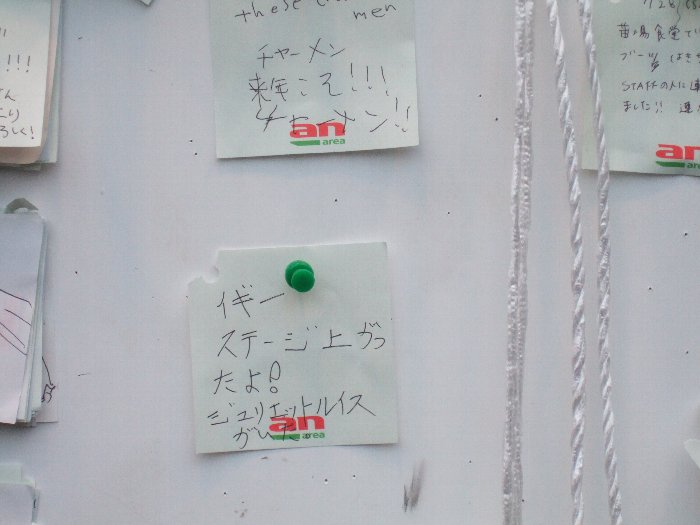 these
men
チャーメン
来年こそ!!!
チャーメン!!
an
area
!!!
さん
ろしく!
イギー
ステージ上がっ
たよ!
ジュリエットルイス
がいた。
an
area
苗場食堂で
ブーツ はき
STAFFの人に
ました!!
an